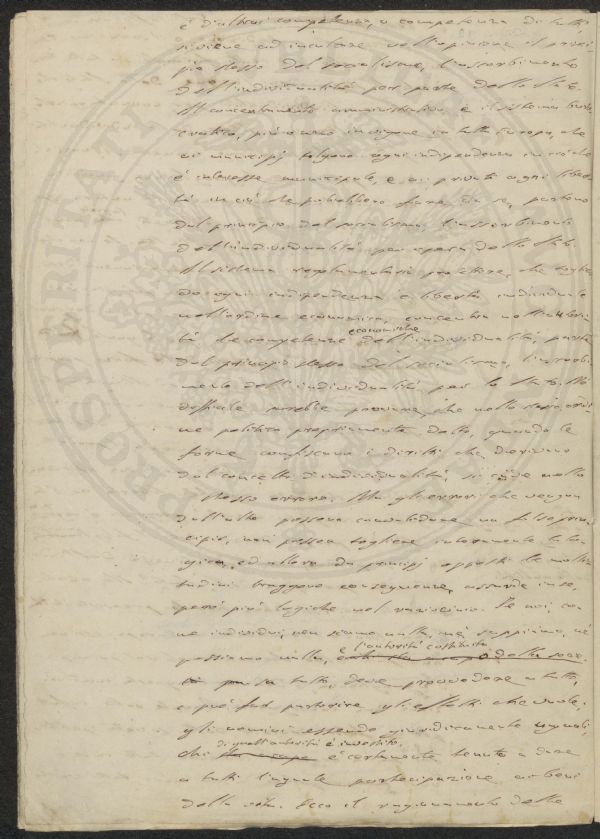 è d'altrui competenza, o competenza di tutti,
si viene ad inculcare nell'opinione il princi-
pio stesso del socialismo, l'assorbimento
dell'individualità per parte dello Stato.
Il concentramento amministrativo, e il sistema buro-
cratico, più o meno in vigore in tutta Europa, che
ai municipj tolgono ogni indipendenza in ciò che
è interesse municipale, e ai privati ogni liber-
tà in ciò che potrebbero fare da se, partono
dal principio del socialismo, l'assorbimento
dell'individualità per opera dello Stato.
Il sistema regolamentario protettore, che toglie
do ogni indipendenza e libertà individuale
nell'ordine economico, concentra nell'autori-
tà le competenze economiche dell'individualità, parte
dal principio stesso del socialismo, l'assorbi-
mento dell'individualità per lo Stato. Nè
difficile sarebbe provare, che nello stesso ordi-
ne politico propriamente detto, quando le
forme confiscano i diritti che derivano
dal concetto d'individualità, si cade nello
stesso errore. Ma gli errori che vengon
dall'alto possono consolidare un falso prin-
cipio, non posson togliere interamente la lo-
gica, ed allora da principj opposti le molti-
tudini traggono conseguenze, assurde in se,
però più logiche nel raziocinio. Se noi, co-
me individui, non siamo nulla, nè sappiamo, nè
possiamo nulla, e l'autorità costituita della soc
tutto, deve provvedere a tutti,
e può far partorire gli effetti che vuole.
Gli uomini essendo giuridicamente uguali,
chi di quell'autorità è investito, è certamente tenuto a dare
a tutti l'uguale partecipazione ai beni
della vita. Ecco il ragionamento delle